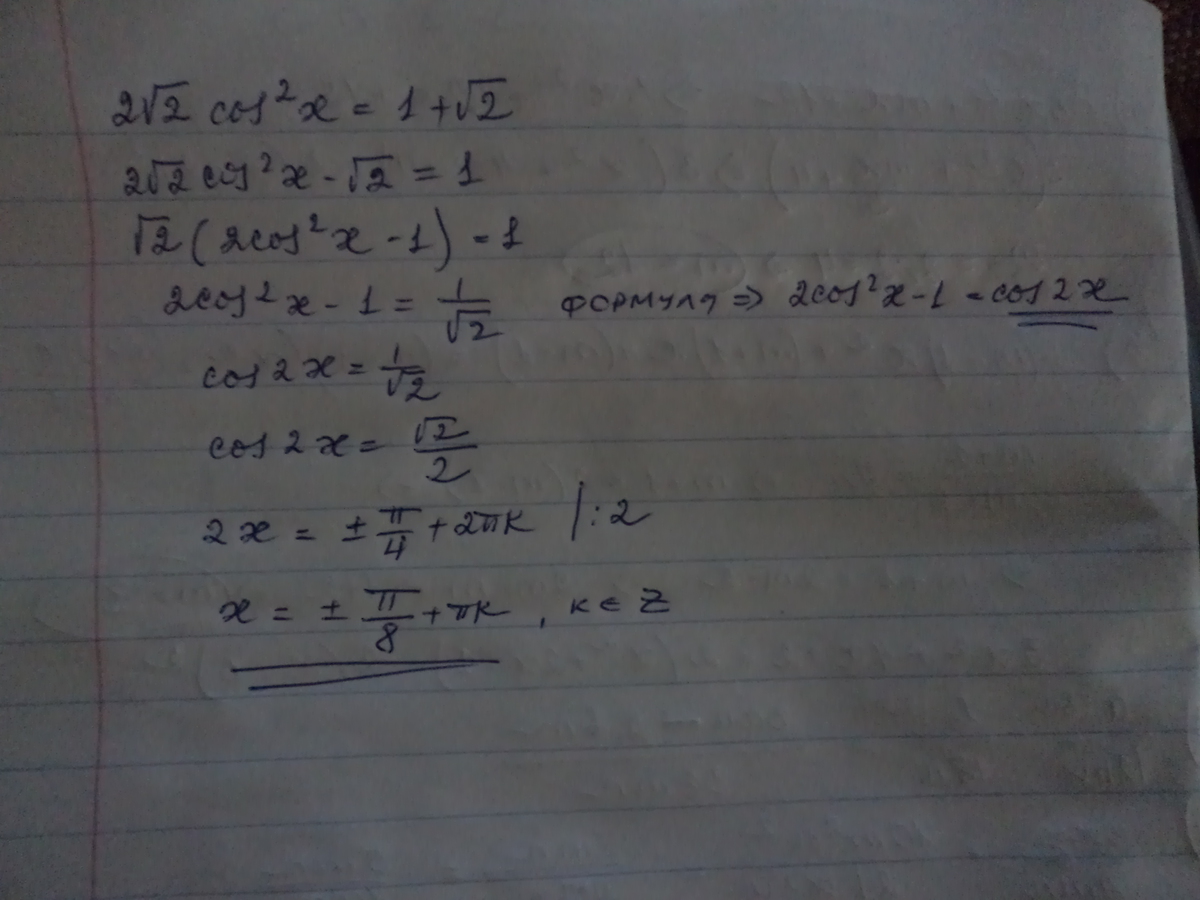 2√2 cos²x = 1 + √2
2√2 cos²x - √2 = 1
√2 (2cos²x - 1) = 1
2cos²x - 1 = 1/√2 формула => 2cos²x - 1 = cos 2x
cos 2x = 1/√2
cos 2x = √2/2
2x = ± π/4 + 2πk /:2
x = ± π/8 + πk , k ∈ Z